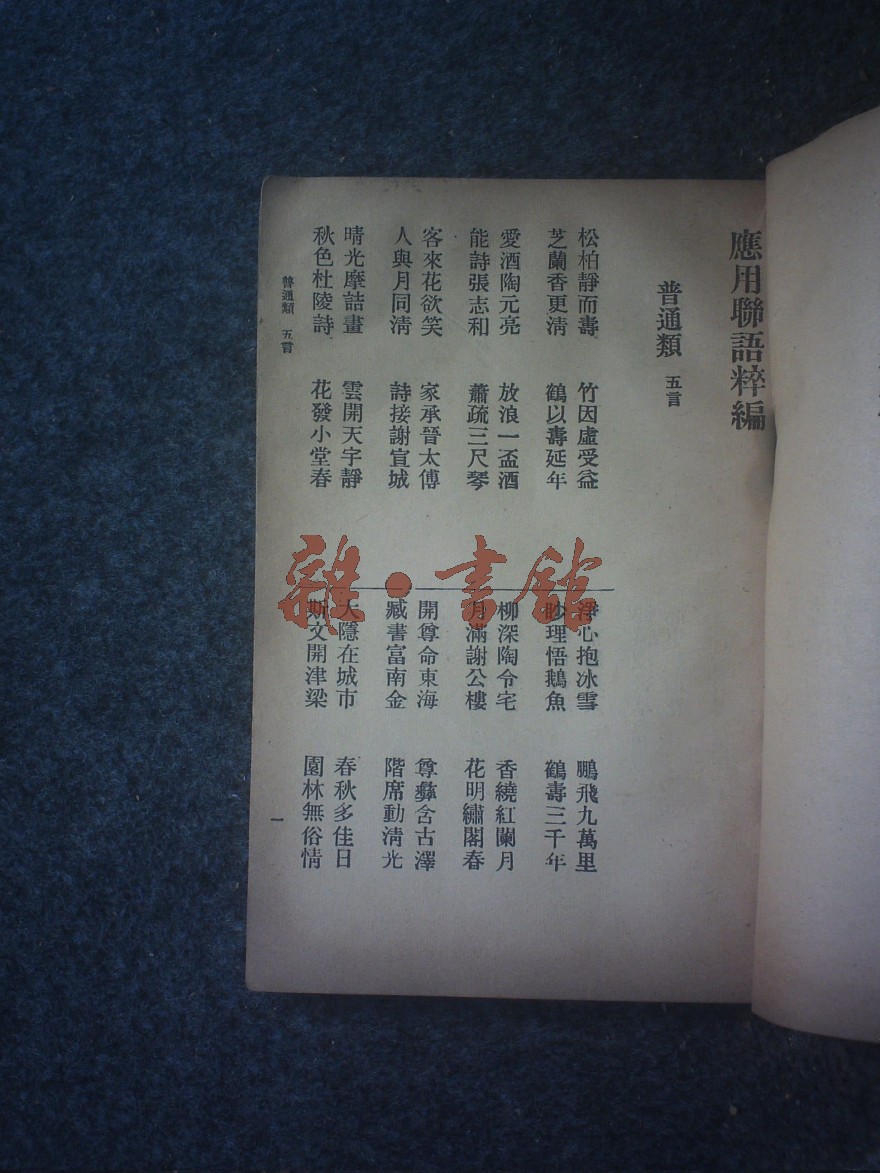 應用聯語粹編
普通類 五言
松柏靜而壽 竹因虛受益
芝蘭香更清 鶴以壽延年
愛酒陶元亮 放浪一盃酒
能詩張志和 蕭疏三尺琴
客來花欲笑 家承晉太傅
人與月同清 詩接謝宣城
晴光摩詰畫 雲開天宇靜
秋色杜陵詩 花發小堂春
淨心抱冰雪 鵬飛九萬里
妙理悟鵝魚 鶴壽三千年
柳深陶令宅 香繞紅闌月
月滿謝公樓 花明繡閣春
開尊命東海 尊彝含古澤
臧書富南金 階席動清光
大隱在城市 春秋多佳日
斯文開津梁 園林無俗情
普通類 五言
一
雜•書館